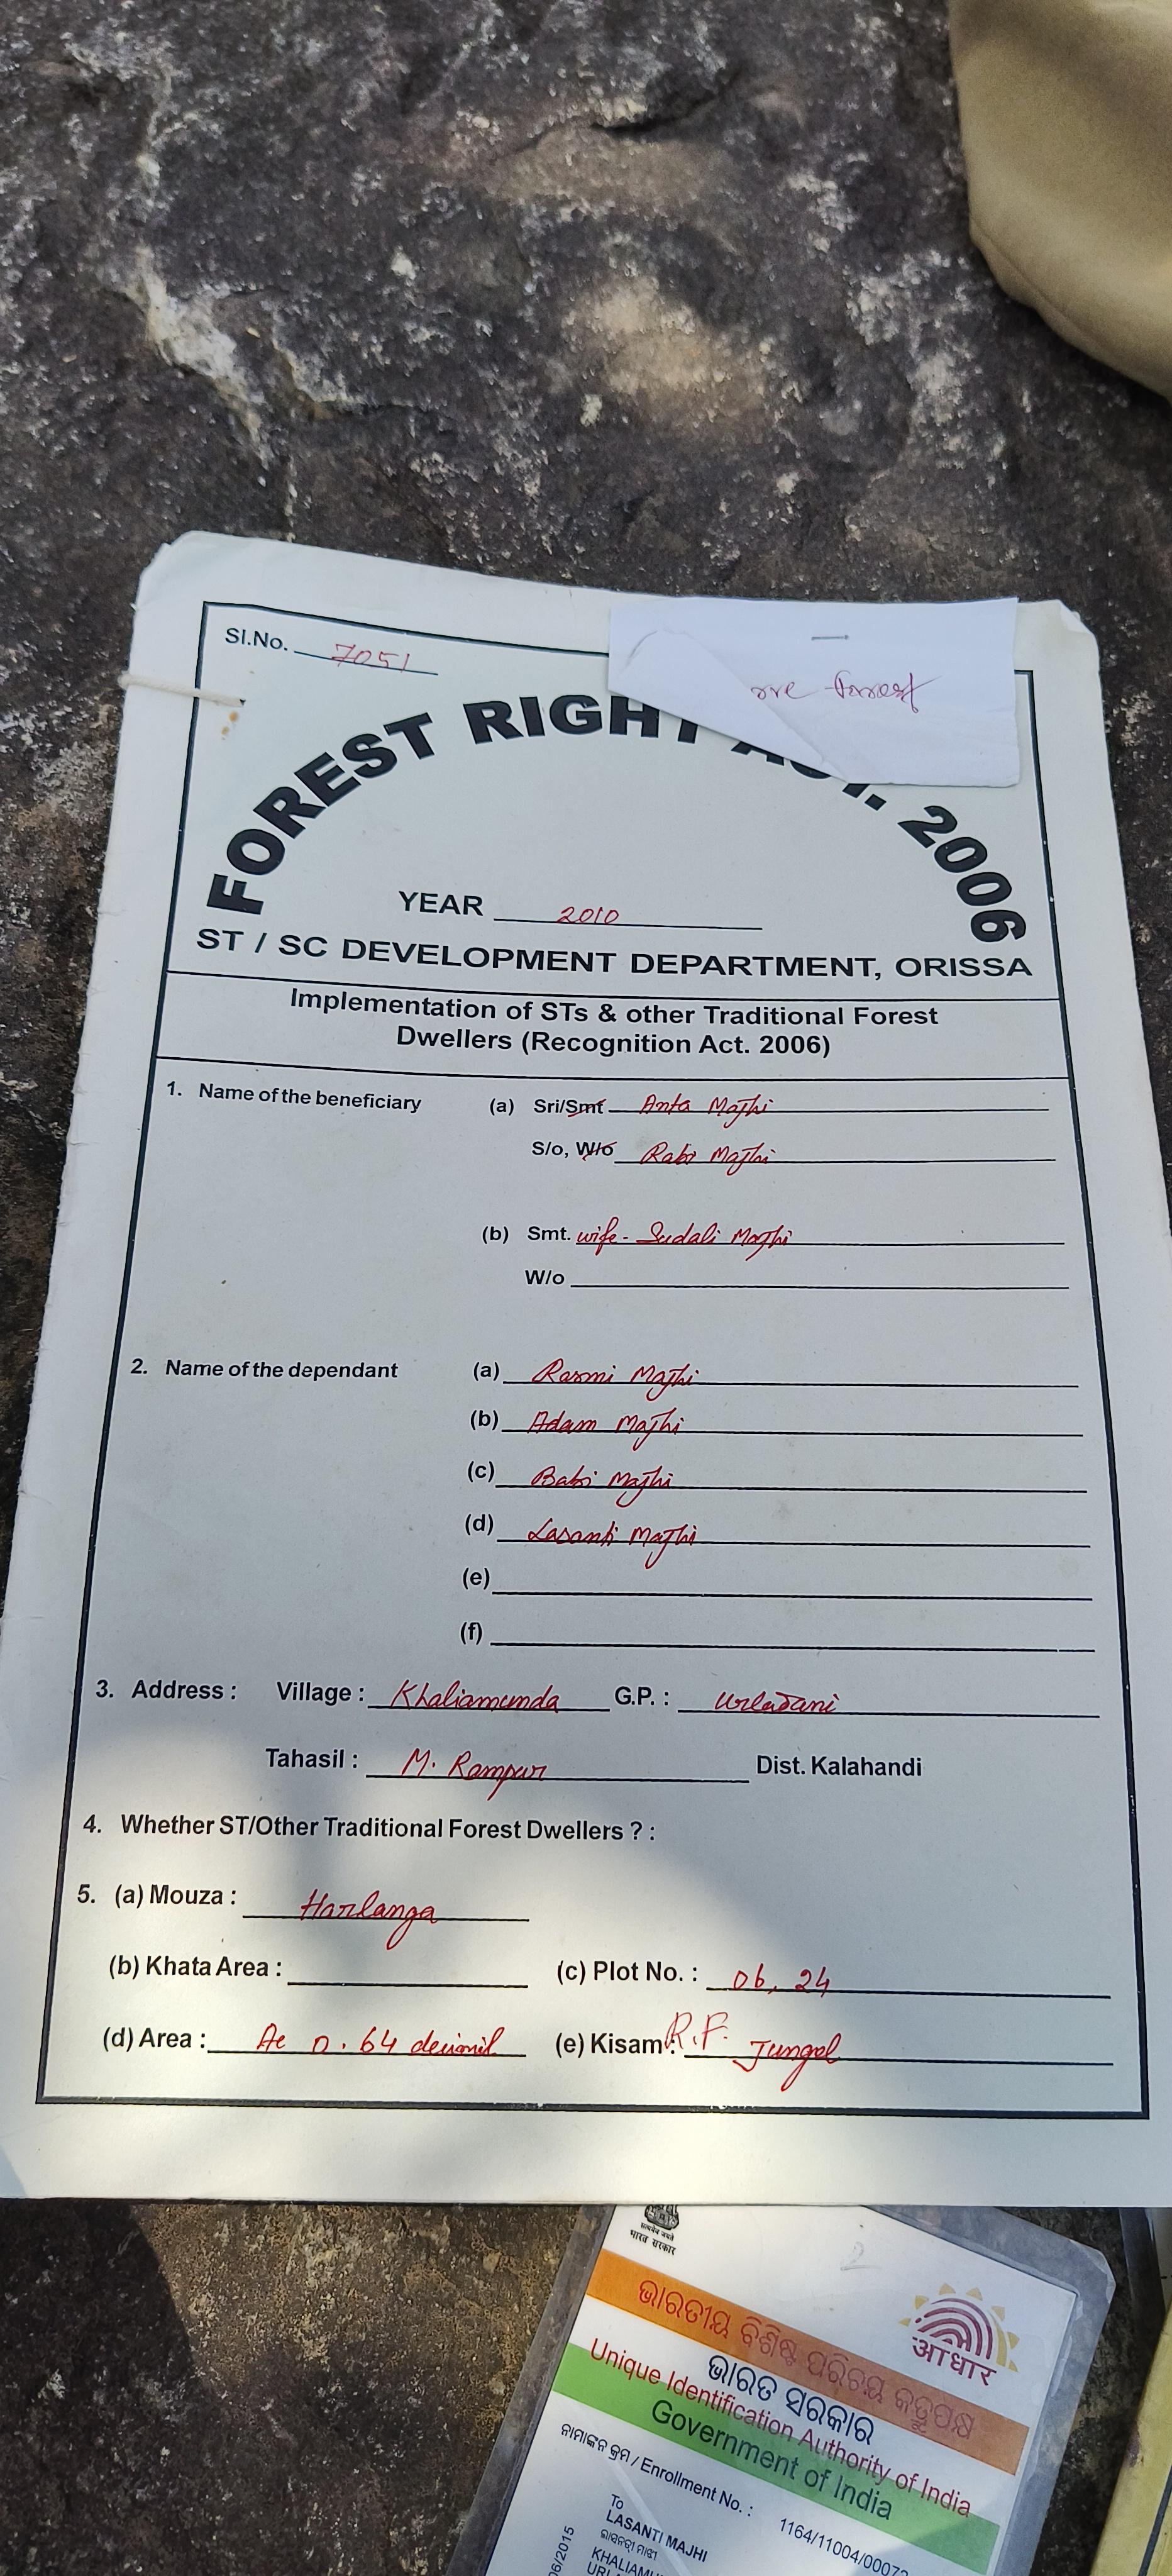 Sl.No. 7051
rve forest
FOREST RIGHT ACT. 2006
YEAR 2010
ST / SC DEVELOPMENT DEPARTMENT, ORISSA
Implementation of STs & other Traditional Forest
Dwellers (Recognition Act. 2006)
1. Name of the beneficiary (a) Sri/Smt Anta Majhi
S/o, W/o Rabi Majhi
(b) Smt. wife - Sudali Majhi
W/o
2. Name of the dependant (a) Rasmi Majhi
(b) Adam Majhi
(c) Babi Majhi
(d) Lasanti Majhi
(e)
(f)
3. Address : Village : Khaliamunda G.P. : Urladani
Tahasil : M. Rampur Dist. Kalahandi
4. Whether ST/Other Traditional Forest Dwellers ? :
5. (a) Mouza : Harlanga
(b) Khata Area : (c) Plot No. : 06, 24
(d) Area : Ac 0.64 decimil (e) Kisam : R.F. Jungal
सत्यमेव जयते
भारत सरकार
2
ଭାରତୀୟ ବିଶିଷ୍ଟ ପରିଚୟ କର୍ତ୍ତୃପକ୍ଷ
आधार
ଭାରତ ସରକାର
Unique Identification Authority of India
Government of India
ନାମାଙ୍କନ କ୍ରମ / Enrollment No. : 1164/11004/00072
To
LASANTI MAJHI
06/2015